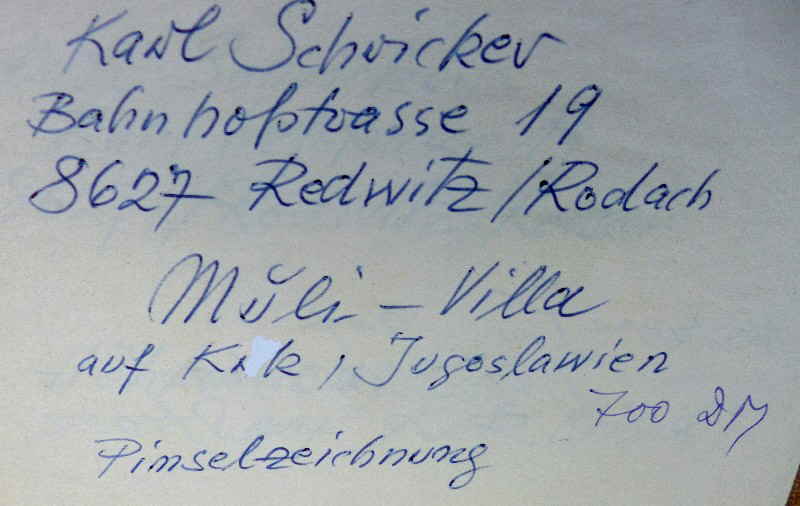 Karl Schricker
Bahnhofstrasse 19
8627 Redwitz/Rodach
Müli-Villa
auf Krk, Jugoslawien
700 DM
Pinselzeichnung